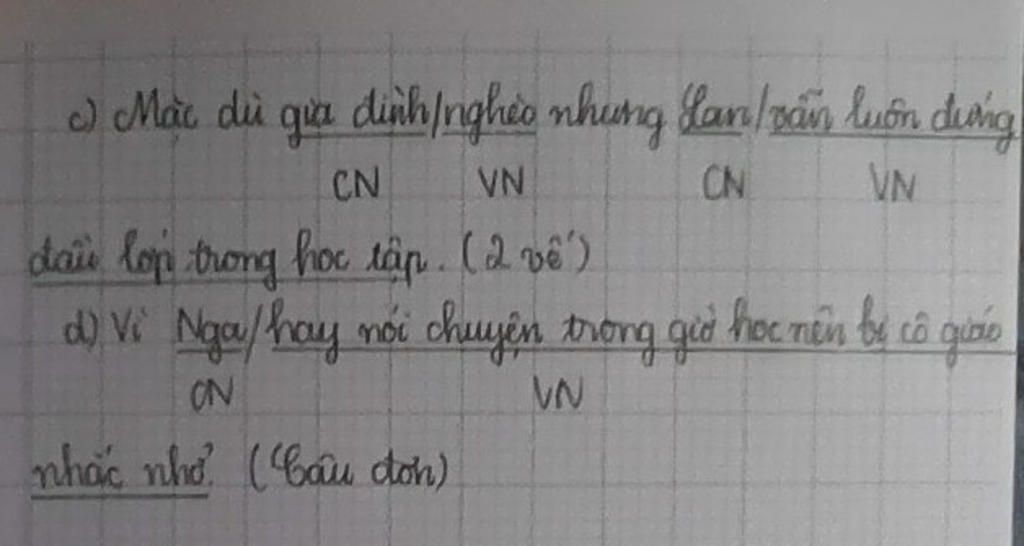 c) Mặc dù gia đình/nghèo nhưng Lan/vẫn luôn đứng
CN VN CN VN
đầu lớp trong học tập. (2 vế)
d) Vì Nga/hay nói chuyện trong giờ học nên bị cô giáo
CN VN
nhắc nhở. (Câu đơn)